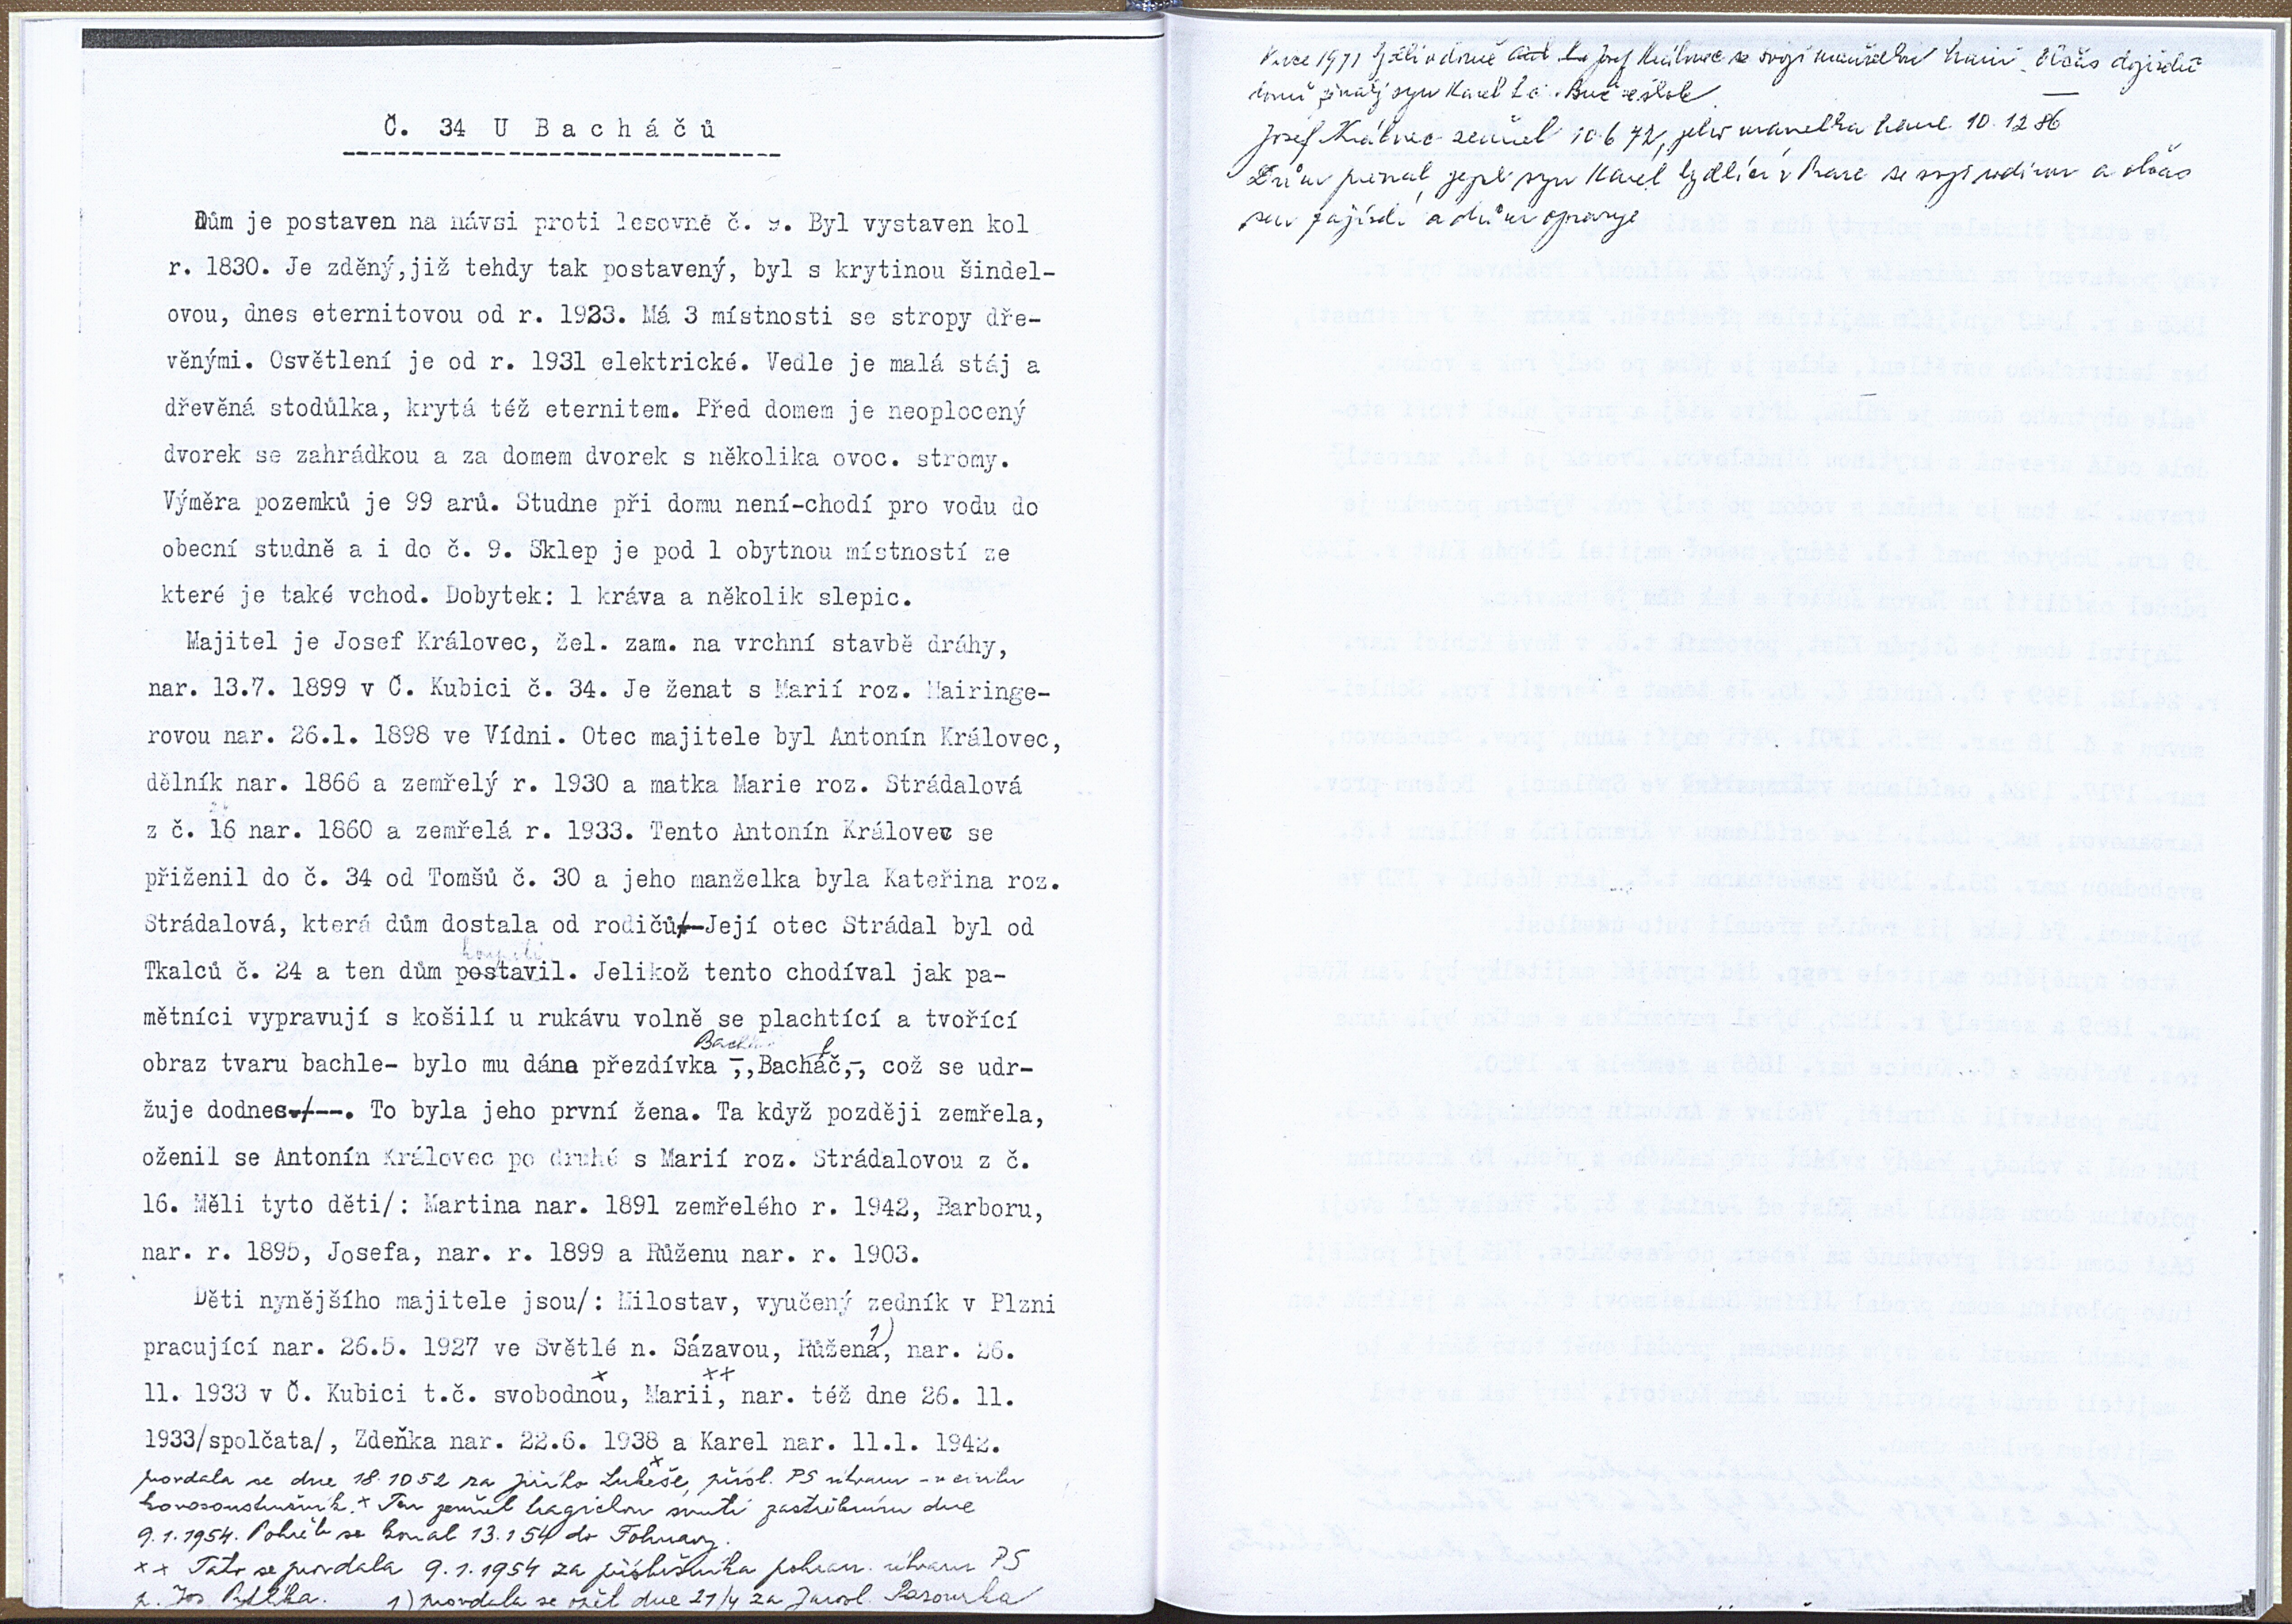 Č. 34 U Bacháčů
Dům je postaven na návsi proti lesovně č. 9. Byl vystaven kol
r. 1830. Je zděný,již tehdy tak postavený, byl s krytinou šindel-
ovou, dnes eternitovou od r. 1923. Má 3 místnosti se stropy dře-
věnými. Osvětlení je od r. 1931 elektrické. Vedle je malá stáj a
dřevěná stodůlka, krytá též eternitem. Před domem je neoplocený
dvorek se zahrádkou a za domem dvorek s několika ovoc. stromy.
Výměra pozemků je 99 arů. Studne při domu není-chodí pro vodu do
obecní studně a i do č. 9. Sklep je pod 1 obytnou místností ze
které je také vchod. Dobytek: 1 kráva a několik slepic.
Majitel je Josef Královec, žel. zam. na vrchní stavbě dráhy,
nar. 13.7. 1899 v Č. Kubici č. 34. Je ženat s Marií roz. Mairinge-
rovou nar. 26.1. 1898 ve Vídni. Otec majitele byl Antonín Královec,
dělník nar. 1866 a zemřelý r. 1930 a matka Marie roz. Strádalová
z č. 16 nar. 1860 a zemřelá r. 1933. Tento Antonín Královec se
přiženil do č. 34 od Tomšů č. 30 a jeho manželka byla Kateřina roz.
Strádalová, která dům dostala od rodičů/-Její otec Strádal byl od
Tkalců č. 24 a ten dům postavil. Jelikož tento chodíval jak pa-
mětníci vypravují s košilí u rukávu volně se plachtící a tvořící
obraz tvaru bachle- bylo mu dána přezdívka -,,Bacháč,-, což se udr-
žuje dodnes./--. To byla jeho první žena. Ta když později zemřela,
oženil se Antonín Královec po druhé s Marií roz. Strádalovou z č.
16. Měli tyto děti/: Martina nar. 1891 zemřelého r. 1942, Barboru,
nar. r. 1895, Josefa, nar. r. 1899 a Růženu nar. r. 1903.
Děti nynějšího majitele jsou/: Milostav, vyučený zedník v Plzni
pracující nar. 26.5. 1927 ve Světlé n. Sázavou, Růžena 1), nar. 26.
11. 1933 v Č. Kubici t.č. svobodnou x, Marii xx, nar. též dne 26. 11.
1933/spolčata/, Zdeňka nar. 22.6. 1938 a Karel nar. 11.1. 1942.
x provdala se dne 18.10 52 za Jiřího Lukeše, přísl. PS útvaru - v civilu
x Ten zemřel tragickou smrtí zastřelením dne
9.1.1954. Pohřeb se konal 13.1 54 do Folmavy.
xx Tato se provdala 9.1.1954 za příslušníka pohran. útvaru PS
p. Jos. 1) provdala se opět dne 21/4 za Jarosl.
V roce 1971 žili v domě Josef Královec se svojí manželkou občas dojíždí
domů syn Karel
Josef Královec zemřel 10.6 72, jeho manželka 10.12 86
Dům převzal jejich syn Karel bydlící v Praze se svojí rodinou a občas
sem zajíždí a dům opravuje